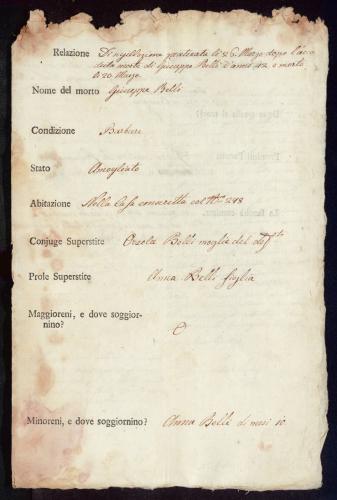 Relazione Di sugillazione praticata li 26 Marzo dopo l'acca
duta morte di Giuseppe Belli d'anni 42 e morto
li 20 Marzo
Nome del morto Giuseppe Belli
Condizione Barbiere
Stato Amogliato
Abitazione Nella Casa connessa col Nro 248
Conjuge Superstite Orsola Belli moglie del dfto
Prole Superstite Anna Belli figlia
Maggioreni, e dove soggior-
nino?
Minoreni, e dove soggiornino? Anna Belli di mesi 10